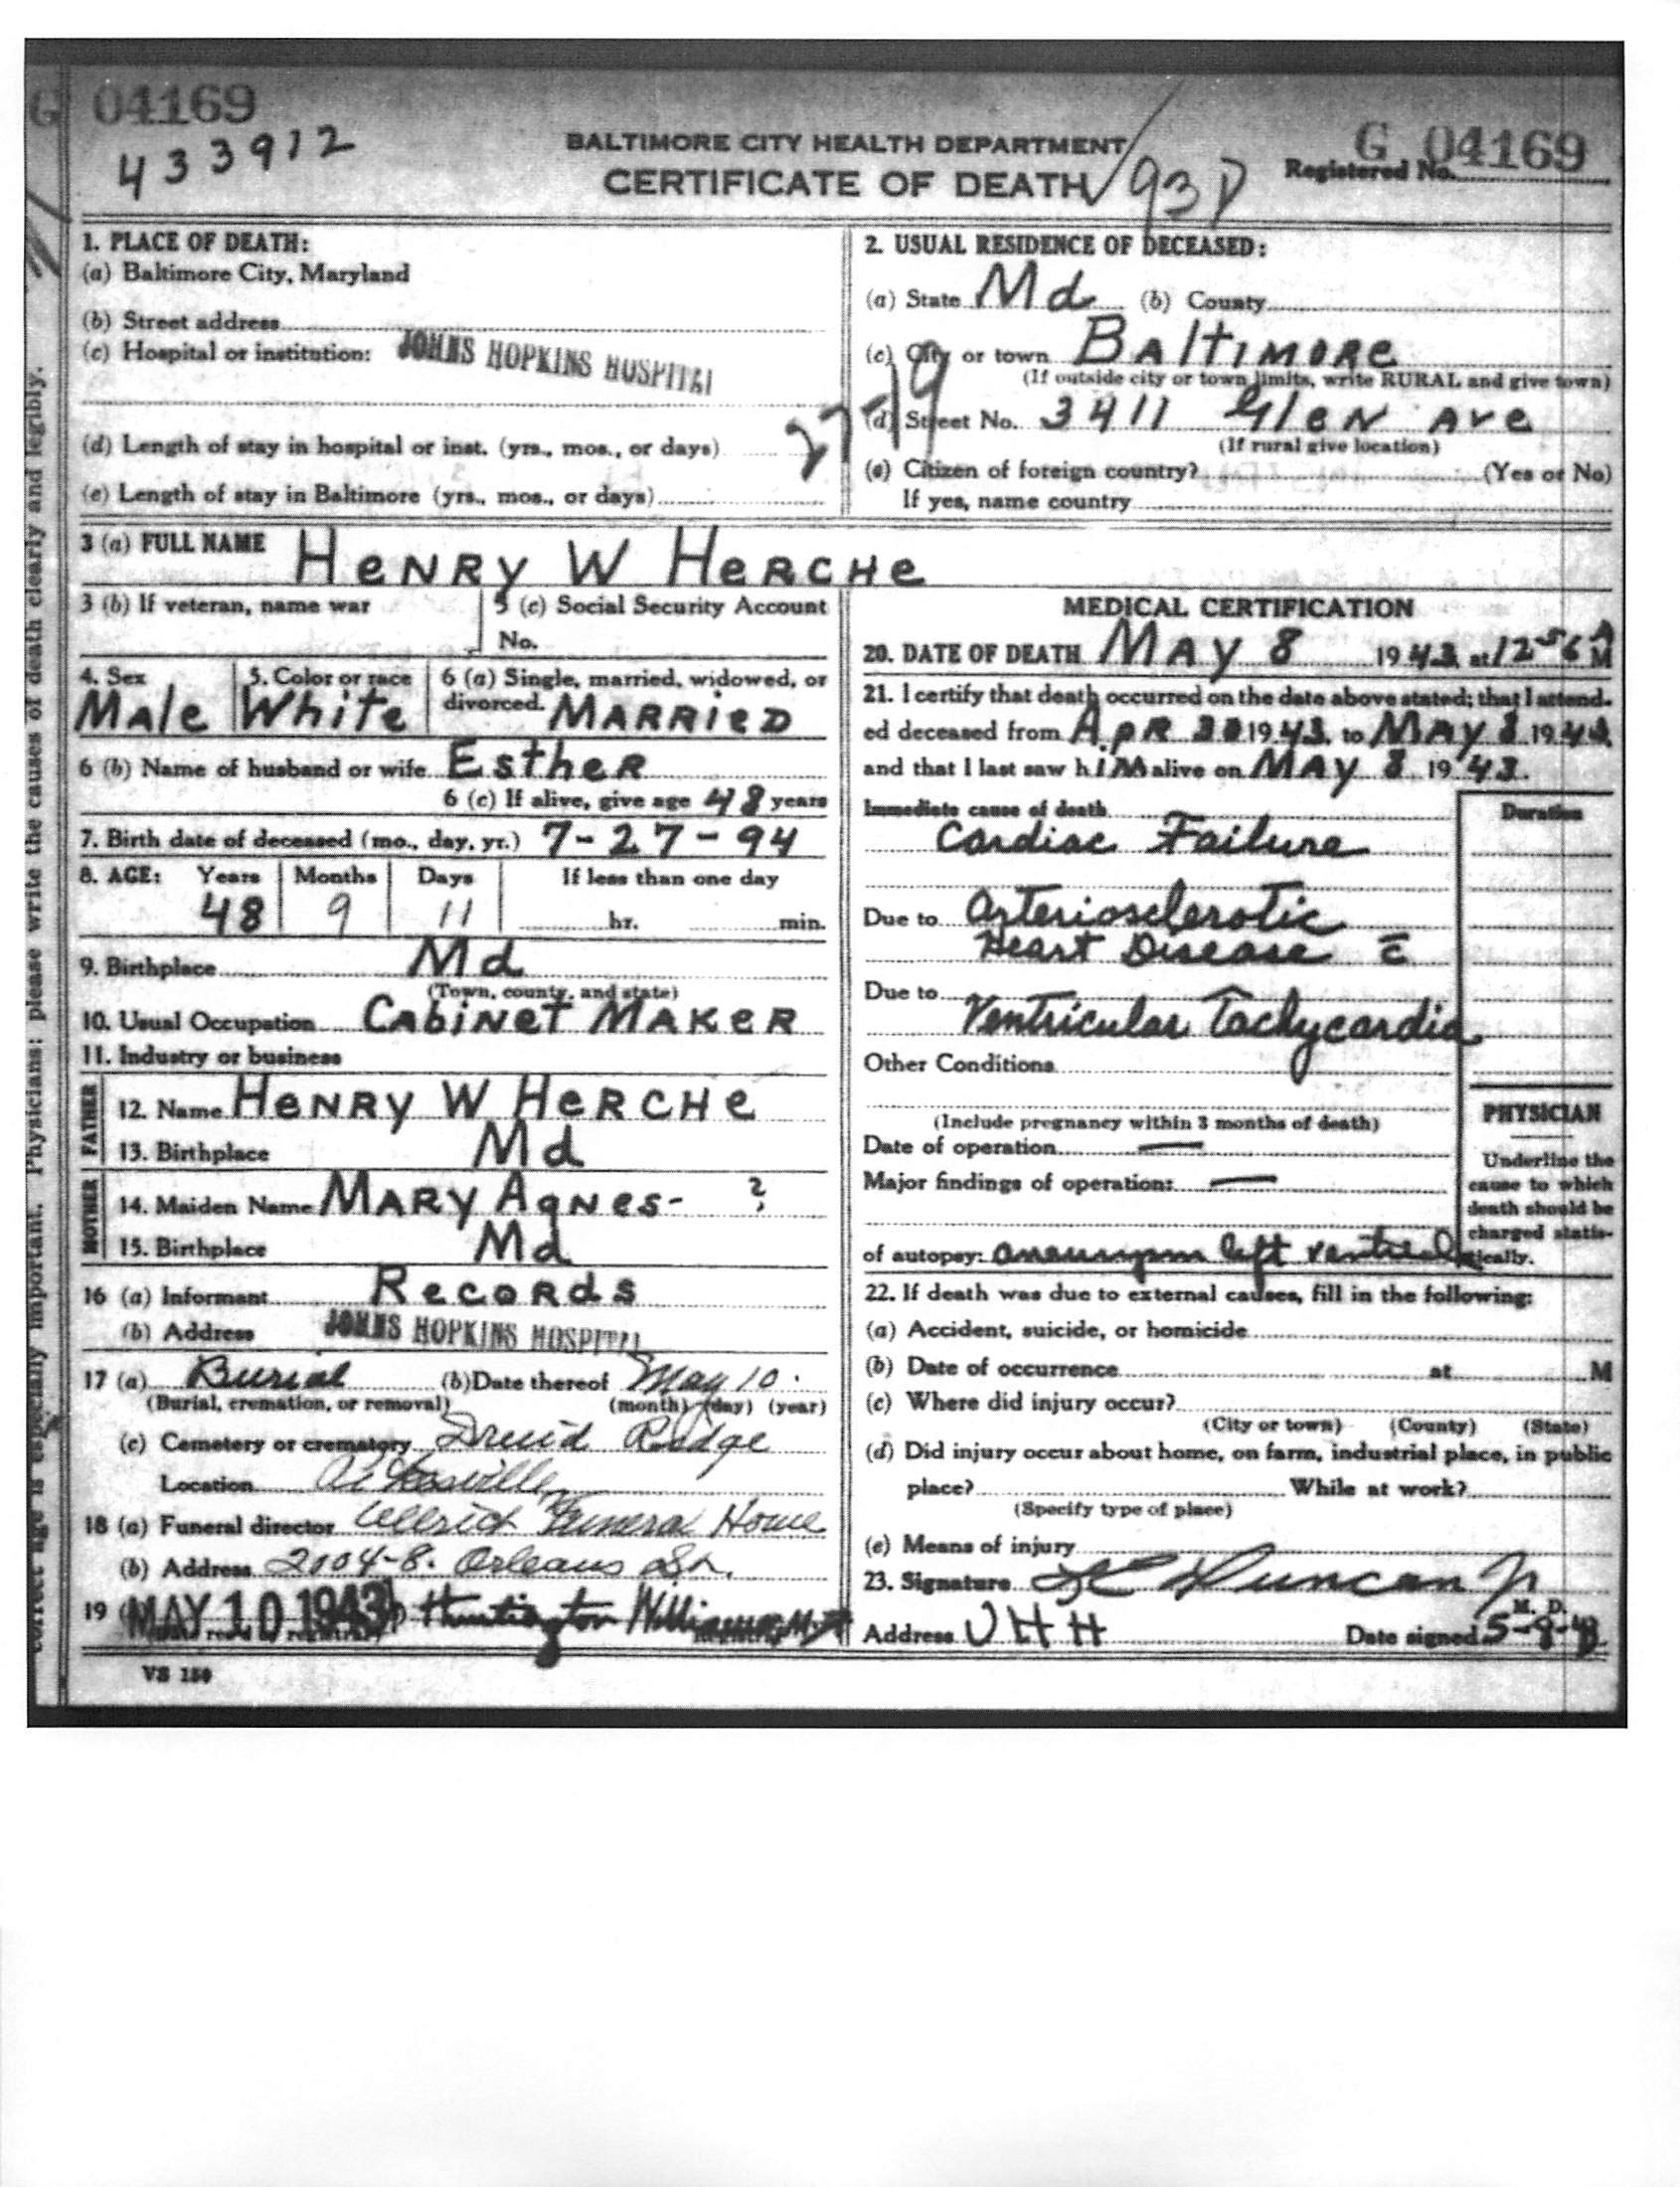 G 04169
433912
BALTIMORE CITY HEALTH DEPARTMENT
CERTIFICATE OF DEATH 93D
G 04169
Registered No.
correct age is especially important. Physicians: please write the causes of death clearly and legibly.
1. PLACE OF DEATH:
(a) Baltimore City, Maryland
(b) Street address
(c) Hospital or institution: JOHNS HOPKINS HOSPITAL
(d) Length of stay in hospital or inst. (yrs., mos., or days)
(e) Length of stay in Baltimore (yrs., mos., or days)
2. USUAL RESIDENCE OF DECEASED:
(a) State Md (b) County
(c) City or town BAltIMORe
(If outside city or town limits, write RURAL and give town)
27-19
(d) Street No. 3411 GleN Ave
(If rural give location)
(e) Citizen of foreign country? (Yes or No)
If yes, name country
3 (a) FULL NAME HeNRy W HeRCHe
3 (b) If veteran, name war
3 (c) Social Security Account
No.
4. Sex Male
5. Color or race White
6 (a) Single, married, widowed, or
divorced. MARRieD
6 (b) Name of husband or wife EstheR
6 (c) If alive, give age 48 years
7. Birth date of deceased (mo., day, yr.) 7-27-94
8. AGE: Years Months Days If less than one day
48 9 11 hr. min.
9. Birthplace Md
(Town, county, and state)
10. Usual Occupation CabiNet MAKeR
11. Industry or business
FATHER
12. Name HeNRy W HeRCHe
13. Birthplace Md
MOTHER
14. Maiden Name MARy AgNes- ?
15. Birthplace Md
16 (a) Informant RecoRds
(b) Address JOHNS HOPKINS HOSPITAL
17 (a) Burial (b) Date thereof May 10.
(Burial, cremation, or removal) (month) (day) (year)
(c) Cemetery or crematory Druid Ridge
Location Pikesville
18 (a) Funeral director Ullrich Funeral Home
(b) Address 2004-8. Orleans St.
19 MAY 10 1943 Huntington Williams, M.D.
VS 150
MEDICAL CERTIFICATION
20. DATE OF DEATH MAy 8 1943, at 12 56 A M
21. I certify that death occurred on the date above stated; that I attend-
ed deceased from ApR 30 1943, to MAy 8 1943,
and that I last saw hIM alive on MAy 8 19 43.
Immediate cause of death
Cardiac Failure
Duration
Due to Arteriosclerotic
Heart Disease c̄
Due to
Ventricular Tachycardia
Other Conditions
(Include pregnancy within 3 months of death)
Date of operation —
Major findings of operation: —
of autopsy: aneurysm left ventricle
PHYSICIAN
Underline the
cause to which
death should be
charged statis-
tically.
22. If death was due to external causes, fill in the following:
(a) Accident, suicide, or homicide
(b) Date of occurrence at M
(c) Where did injury occur?
(City or town) (County) (State)
(d) Did injury occur about home, on farm, industrial place, in public
place? While at work?
(Specify type of place)
(e) Means of injury
23. Signature Duncan Jr
M. D.
Address JHH Date signed 5-8-43